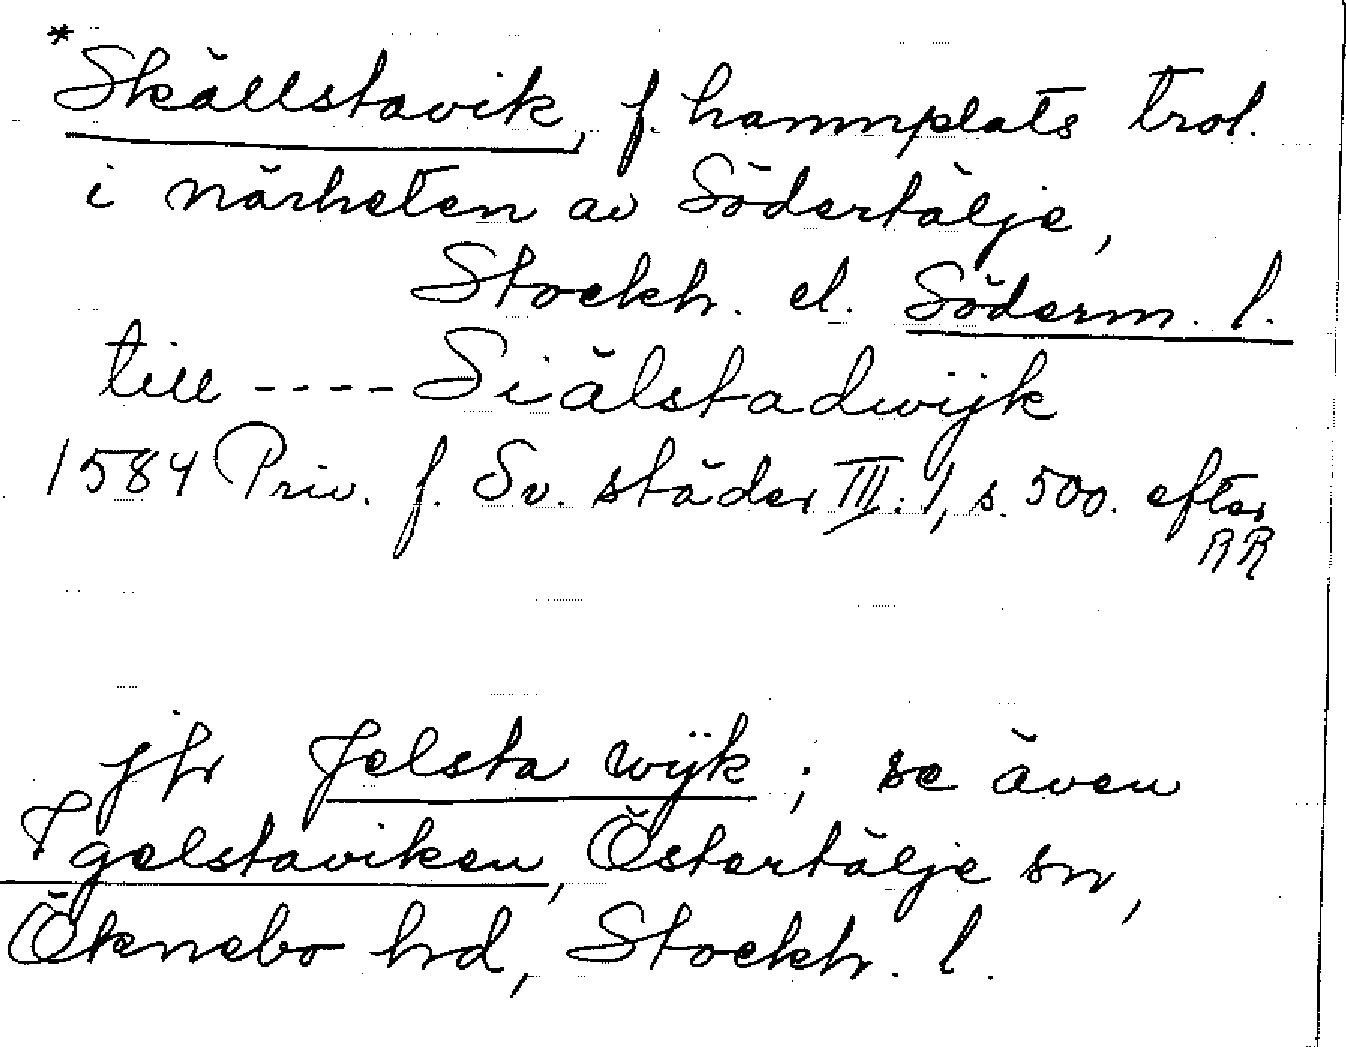 *Skällstavik, f. hamnplats trol.
i närheten av Södertälje,
Stockh. el. Söderm. l.
till ---- Siälstadwijk
1584 Priv. f. Sv. städer III:1, s. 500. efter
RR
jfr Jelsta wijk; se även
Igelstaviken, Östertälje sn,
Öknebo hd, Stockh. l.